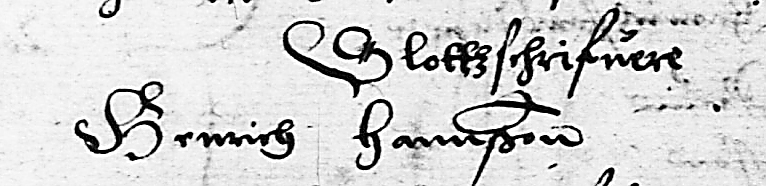 Slottzschrifuere
Henrich Hannßon